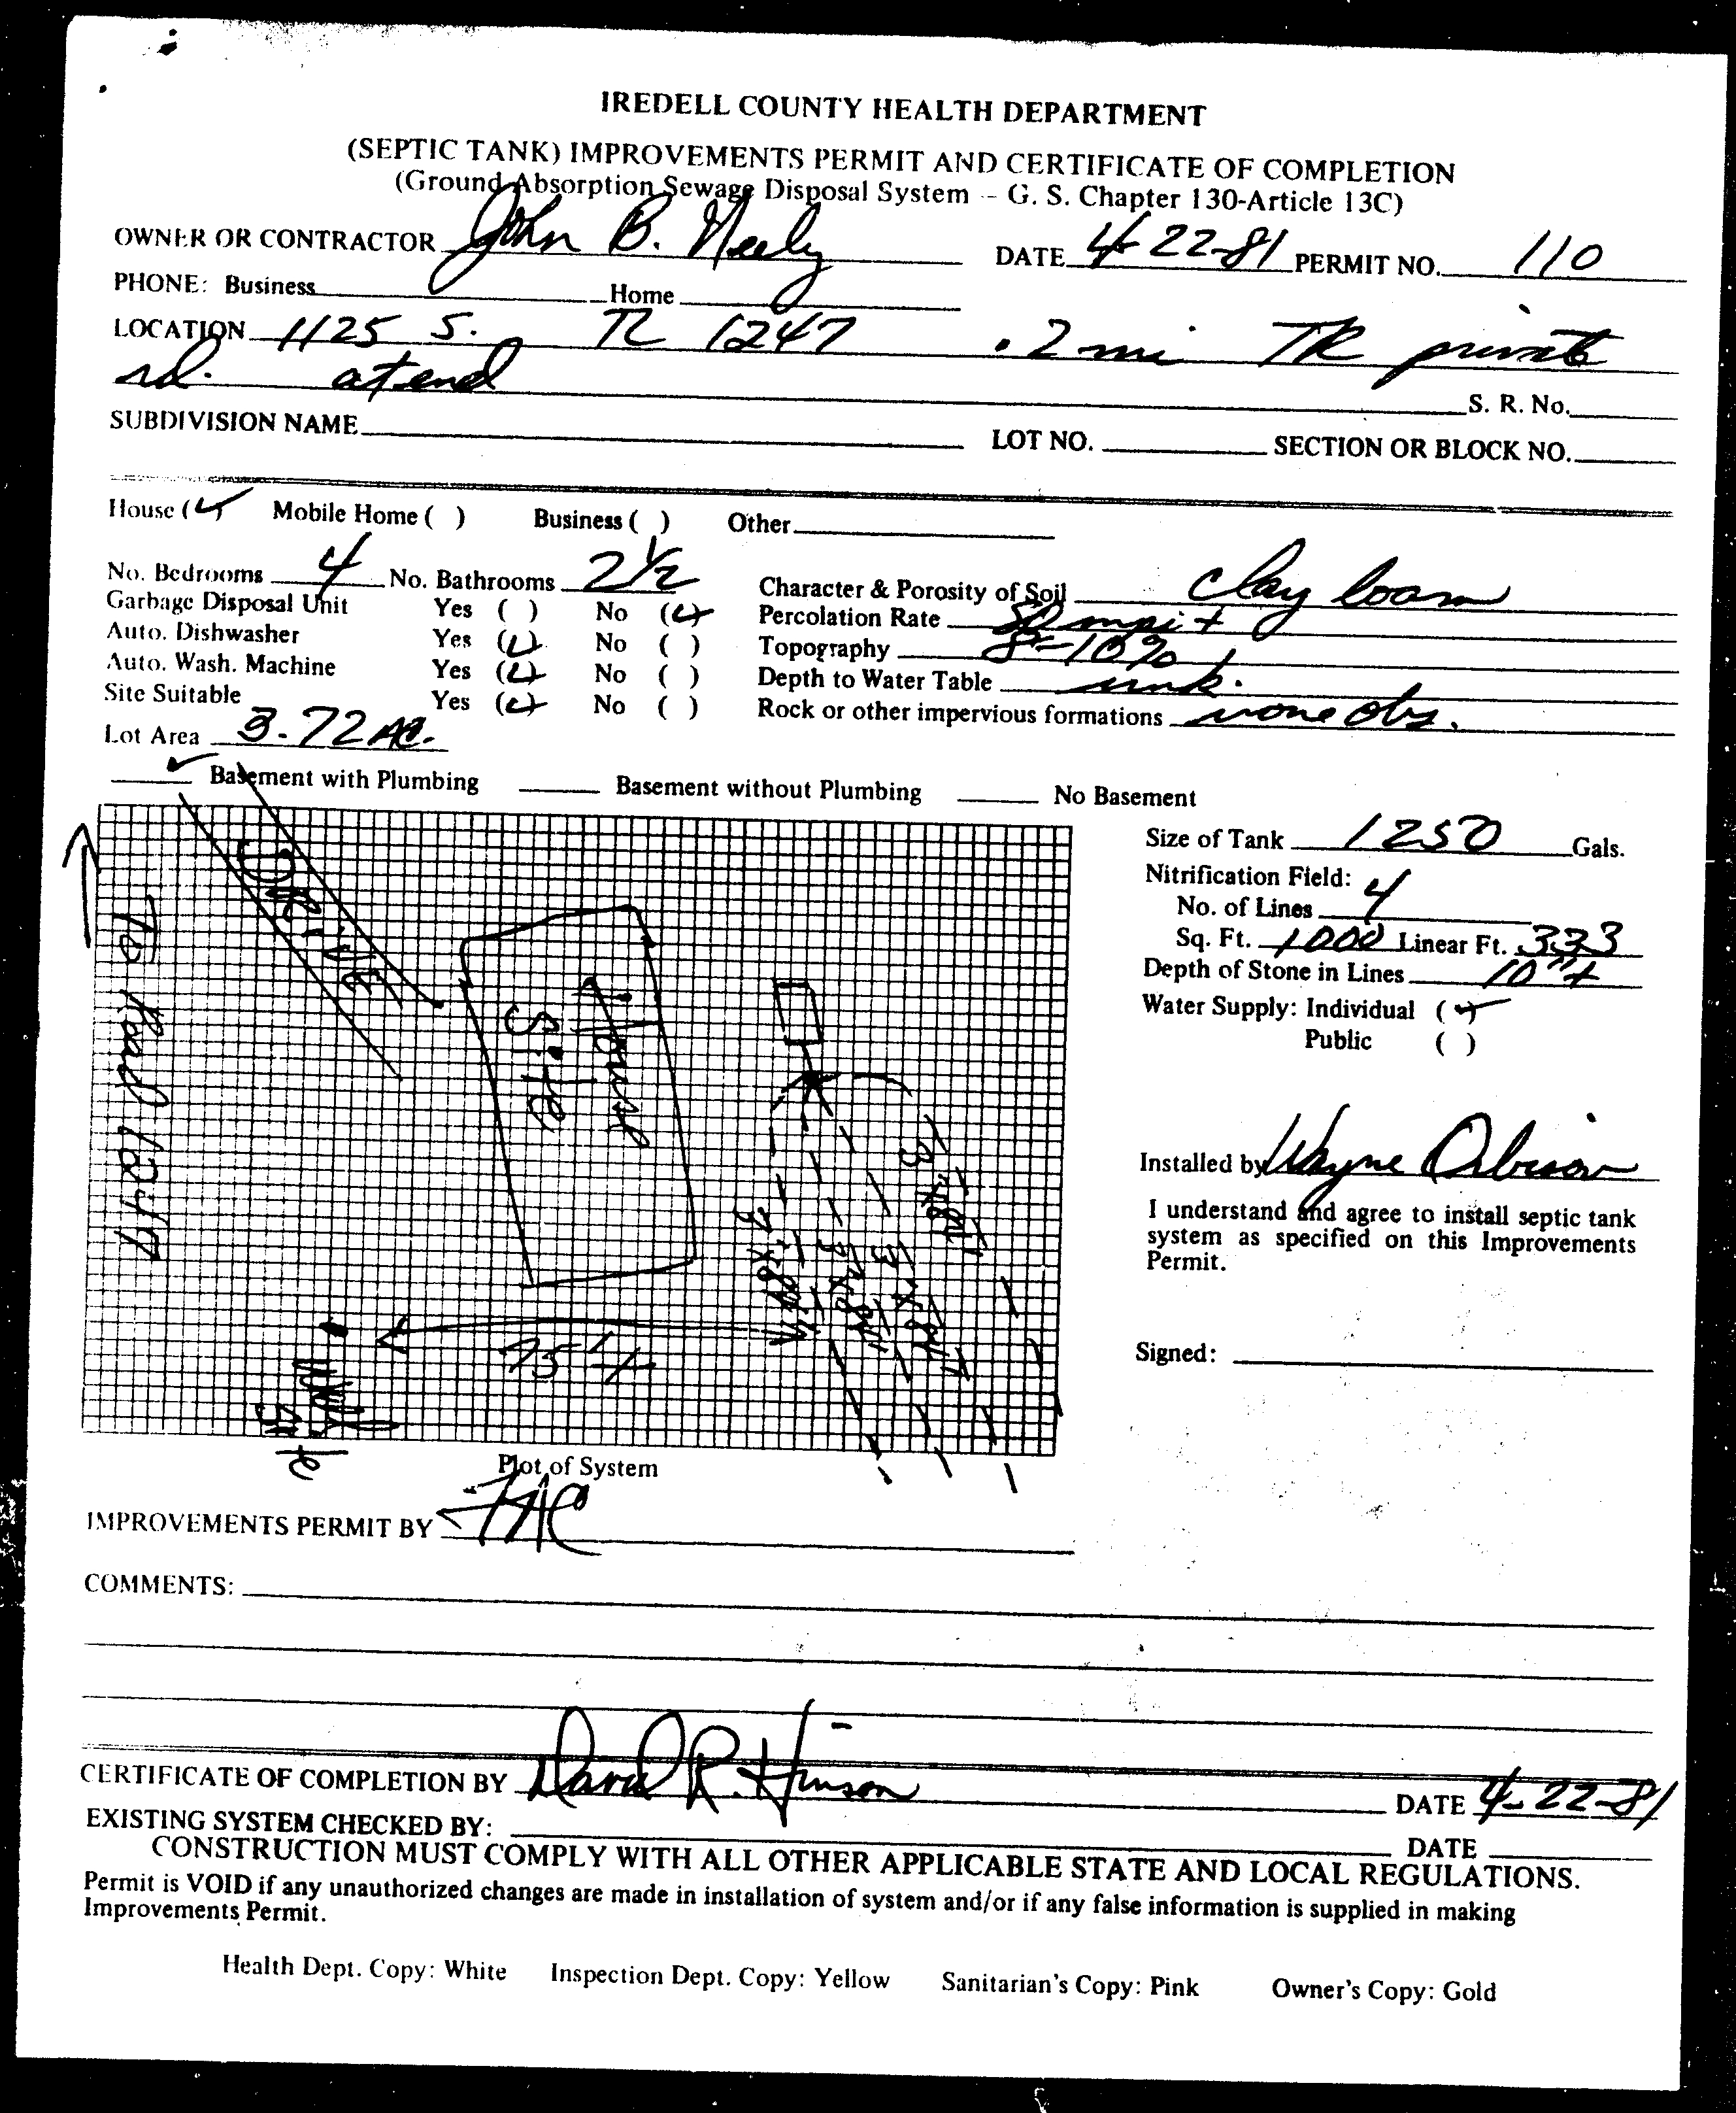 IREDELL COUNTY HEALTH DEPARTMENT
(SEPTIC TANK) IMPROVEMENTS PERMIT AND CERTIFICATE OF COMPLETION
(Ground Absorption Sewage Disposal System -- G. S. Chapter 130-Article 13C)
OWNER OR CONTRACTOR John B. Neely DATE 4-22-81 PERMIT NO. 110
PHONE: Business Home
LOCATION 1125 S. TL 1247 .2 mi TR private
rd. at end S. R. No.
SUBDIVISION NAME LOT NO. SECTION OR BLOCK NO.
House (✓) Mobile Home ( ) Business ( ) Other
No. Bedrooms 4 No. Bathrooms 2 1/2 Character & Porosity of Soil Clay loam
Garbage Disposal Unit Yes ( ) No (✓) Percolation Rate 50 mpi +
Auto. Dishwasher Yes (✓) No ( ) Topography 8-10%
Auto. Wash. Machine Yes (✓) No ( ) Depth to Water Table unk.
Site Suitable Yes (✓) No ( ) Rock or other impervious formations none obs.
Lot Area 3.72 AC.
✓ Basement with Plumbing Basement without Plumbing No Basement
Size of Tank 1250 Gals.
Nitrification Field:
No. of Lines 4
Sq. Ft. 1000 Linear Ft. 333
Depth of Stone in Lines 10" +
Water Supply: Individual (✓)
Public ( )
To Road 1247
Drive
House
Site
Well
Site
75'
3'x84'
3'x84'
3'x84'
3'x84'
Installed by Wayne
I understand and agree to install septic tank
system as specified on this Improvements
Permit.
Signed:
Plot of System
IMPROVEMENTS PERMIT BY
COMMENTS:
CERTIFICATE OF COMPLETION BY David R. Hinson DATE 4-22-81
EXISTING SYSTEM CHECKED BY: DATE
CONSTRUCTION MUST COMPLY WITH ALL OTHER APPLICABLE STATE AND LOCAL REGULATIONS.
Permit is VOID if any unauthorized changes are made in installation of system and/or if any false information is supplied in making
Improvements Permit.
Health Dept. Copy: White Inspection Dept. Copy: Yellow Sanitarian's Copy: Pink Owner's Copy: Gold